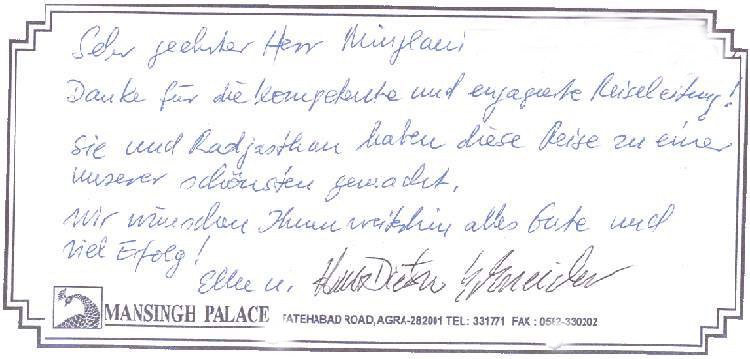 Sehr geehrter Herr Minglani
Danke für die kompetente und engagierte Reiseleitung!
Sie und Radjasthan haben diese Reise zu einer
unserer schönsten gemacht.
Wir wünschen Ihnen weiterhin alles Gute und
viel Erfolg!
Elke u. Hans Dieter Schneider
MANSINGH PALACE FATEHABAD ROAD, AGRA-282001 TEL: 331771 FAX : 0562-330202